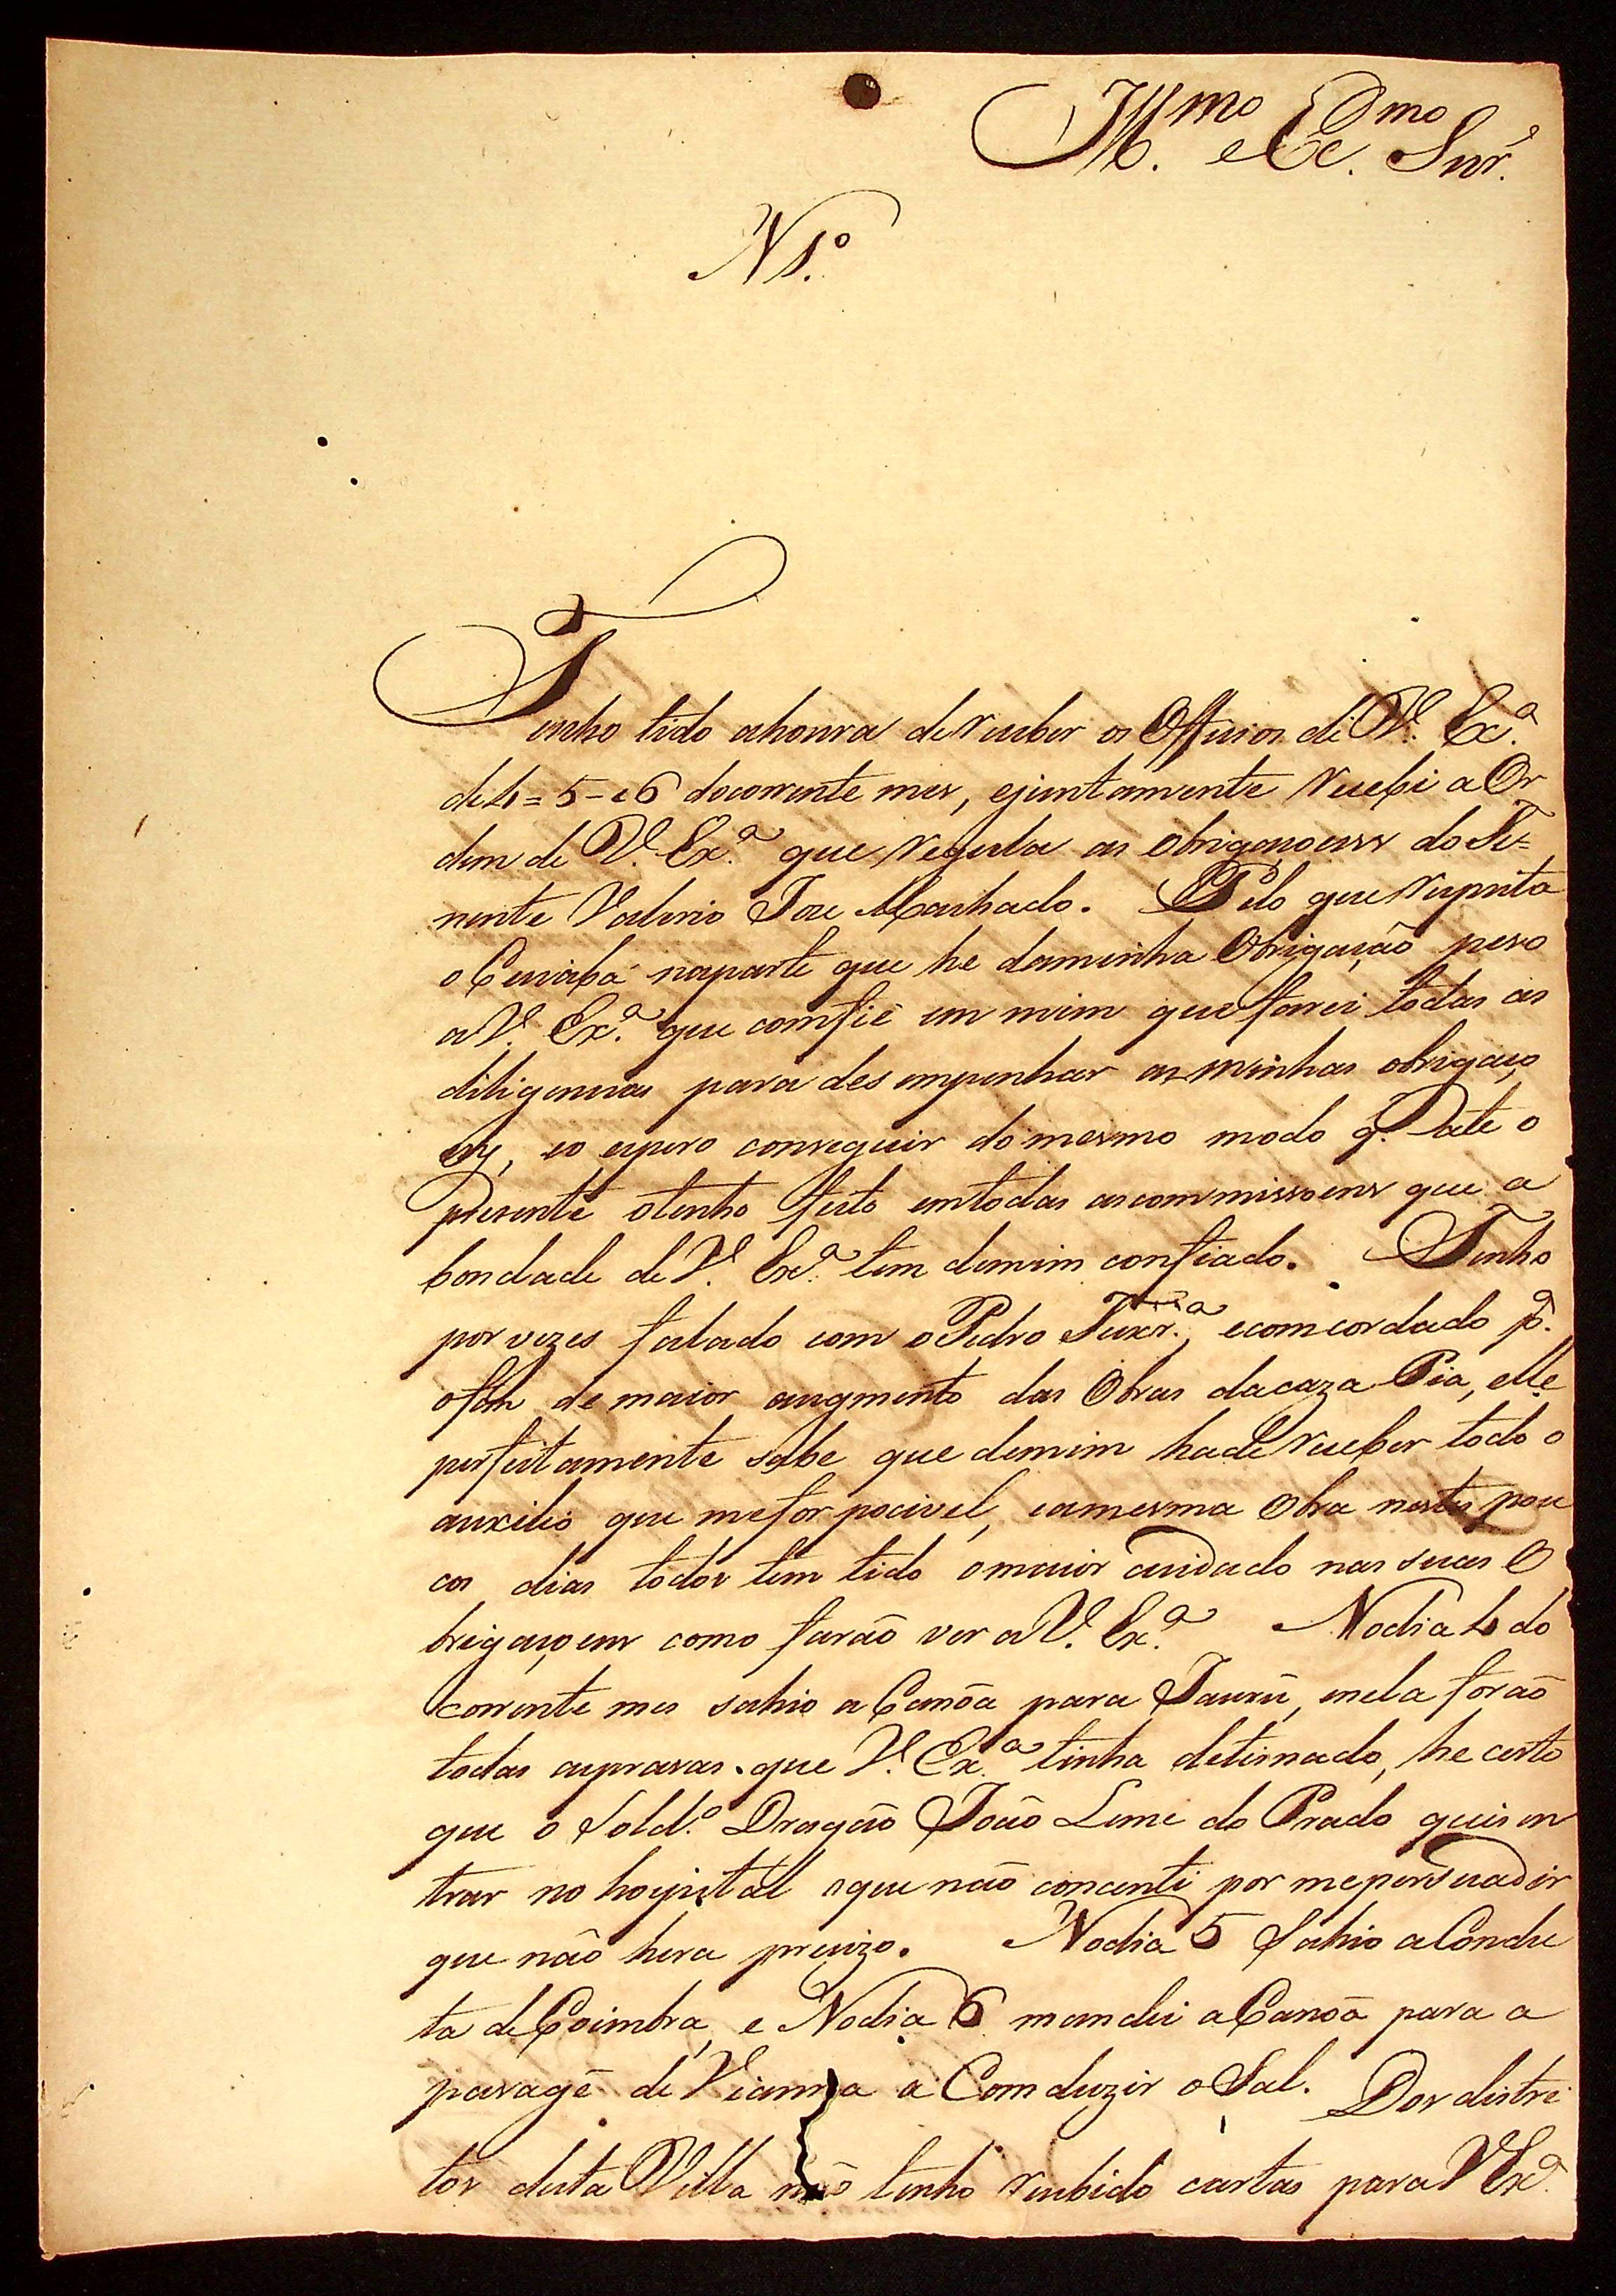 Ill.mo e Ex.mo Snr.
N 1.º
Tenho tido ahonra de receber os Officios de V. Ex.ª
de 4 = 5 - e 6 docorrente mes, ejuntamente recebi a Or
dem de V. Ex.ª que regula as obrigaçoens do Te=
nente Valerio Joze Machado. Pelo que respeita
o Cuiabá naparte que he daminha Obrigação peso
a V. Ex.ª que comfie em mim que farei todas as
diligencias para des empenhar as minhas obrigaço
ens, eo espero conseguir do mesmo modo q. ate o
presente otenho feito emtodas ascommissoens que a
bondade de V. Ex.ª tem demim confiado. Tenho
por vezes falado com o Pedro Teixr.ª, ecomcordado p.ª
ofim de maior augmento das Obras dacaza Pia, elle
perfeitamente sabe que demim hade receber todo o
auxilio que mefor pocivel, eamesma Obra nestes pou
cos dias todos tem tido omaior cuidado nas suas O
brigaçoens como farão ver a V. Ex.ª Nodia 4 do
corrente mes sahio a Canôa para Jaurú, enela forão
todas aspraças que V. Ex.ª tinha detirnado, he certo
que o Sold.º Dragão João Leme do Prado quis en
trar no hospital oque não concenti por mepersuadir
que não hera precizo. Nodia 5 Sahio a Condu
ta de Coimbra, e Nodia 6 mandei a Canôa para a
paragẽ de Vianna a Comduzir o Sal. Dos distri
tos desta Villa não tenho recebido cartas para V Ex.ª